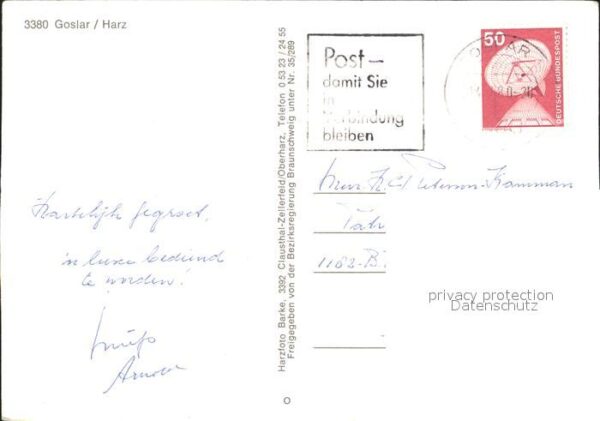 3380 Goslar / Harz
Post –
damit Sie
in
Verbindung
bleiben
50
DEUTSCHE BUNDESPOST
Harzfoto Barke, 3392 Clausthal-Zellerfeld/Oberharz, Telefon 0 53 23 / 24 55
Freigegeben von der Bezirksregierung Braunschweig unter Nr. 35/289
Hartelijk gegroet,
in luxe bediend
te worden!
Arnold
1183-B.
privacy protection
Datenschutz